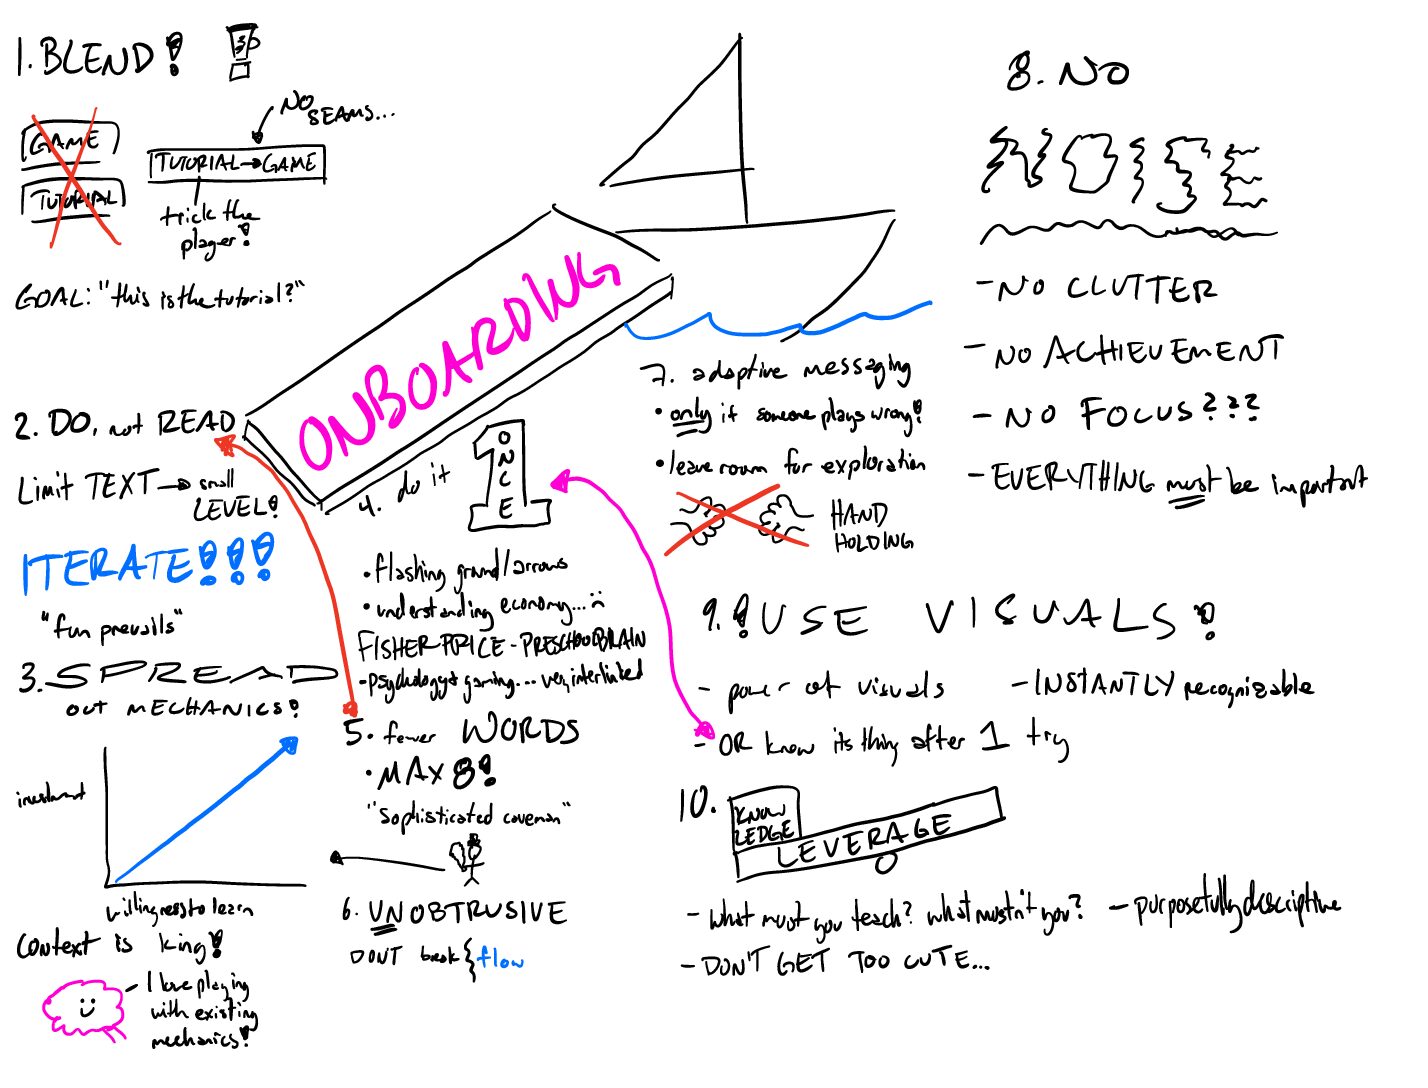 1. BLEND!
GAME
TUTORIAL
NO
SEAMS...
TUTORIAL → GAME
trick the
player!
GOAL: "this is the tutorial?"
ONBOARDING
2. DO, not READ
Limit TEXT → small
LEVEL!
ITERATE!!!
"fun prevails"
3. SPREAD
out MECHANICS!
investment
willingness to learn
context is king!
- I love playing
with existing
mechanics!
4. do it
1
ONCE
• flashing ground/arrows
• understanding economy... :(
FISHER PRICE - PRESCHOOL BRAIN
• psychology + gaming... very interlinked
5. fewer WORDS
• MAX 8!
"sophisticated caveman"
6. UNOBTRUSIVE
DON'T break { flow
7. adaptive messaging
• only if someone plays wrong!
• leave room for exploration
HAND
HOLDING
8. NO
NOISE
- NO CLUTTER
- NO ACHIEVEMENT
- NO FOCUS???
- EVERYTHING must be important
9. !USE VISUALS!
- power of visuals
- INSTANTLY recognizable
- OR know its thing after 1 try
10.
KNOW
LEDGE
LEVERAGE
- what must you teach? what mustn't you?
- purposefully descriptive
- DON'T GET TOO CUTE...